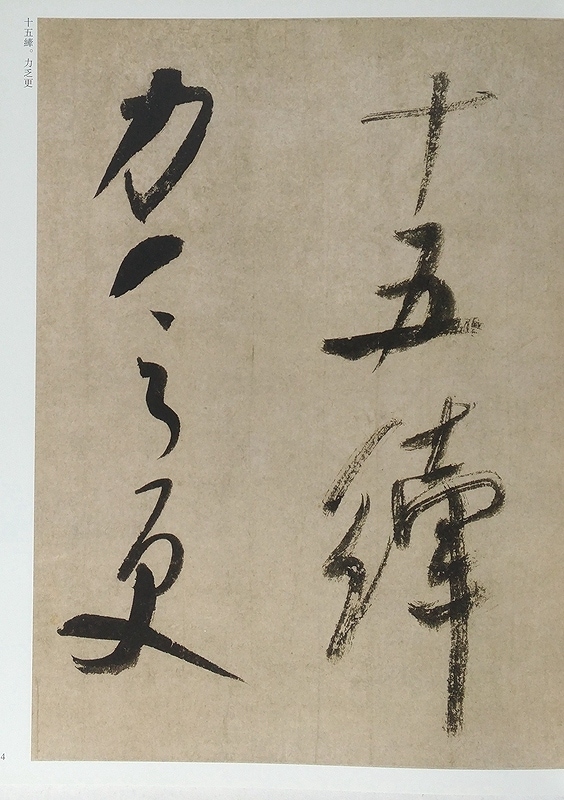 十五縴
力乏更
十五縴。力乏更
4